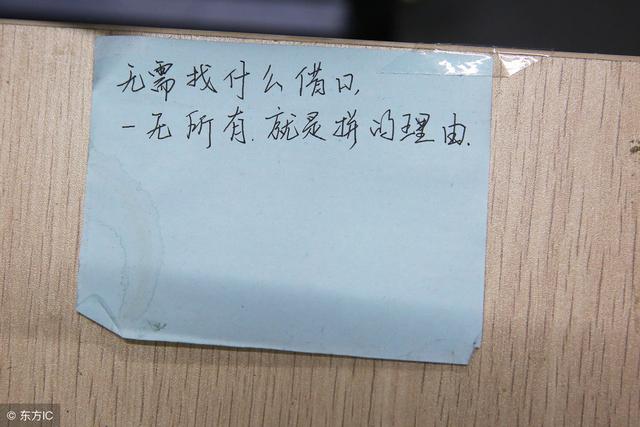 无需找什么借口,
一无所有.就是拼的理由.
©东方IC